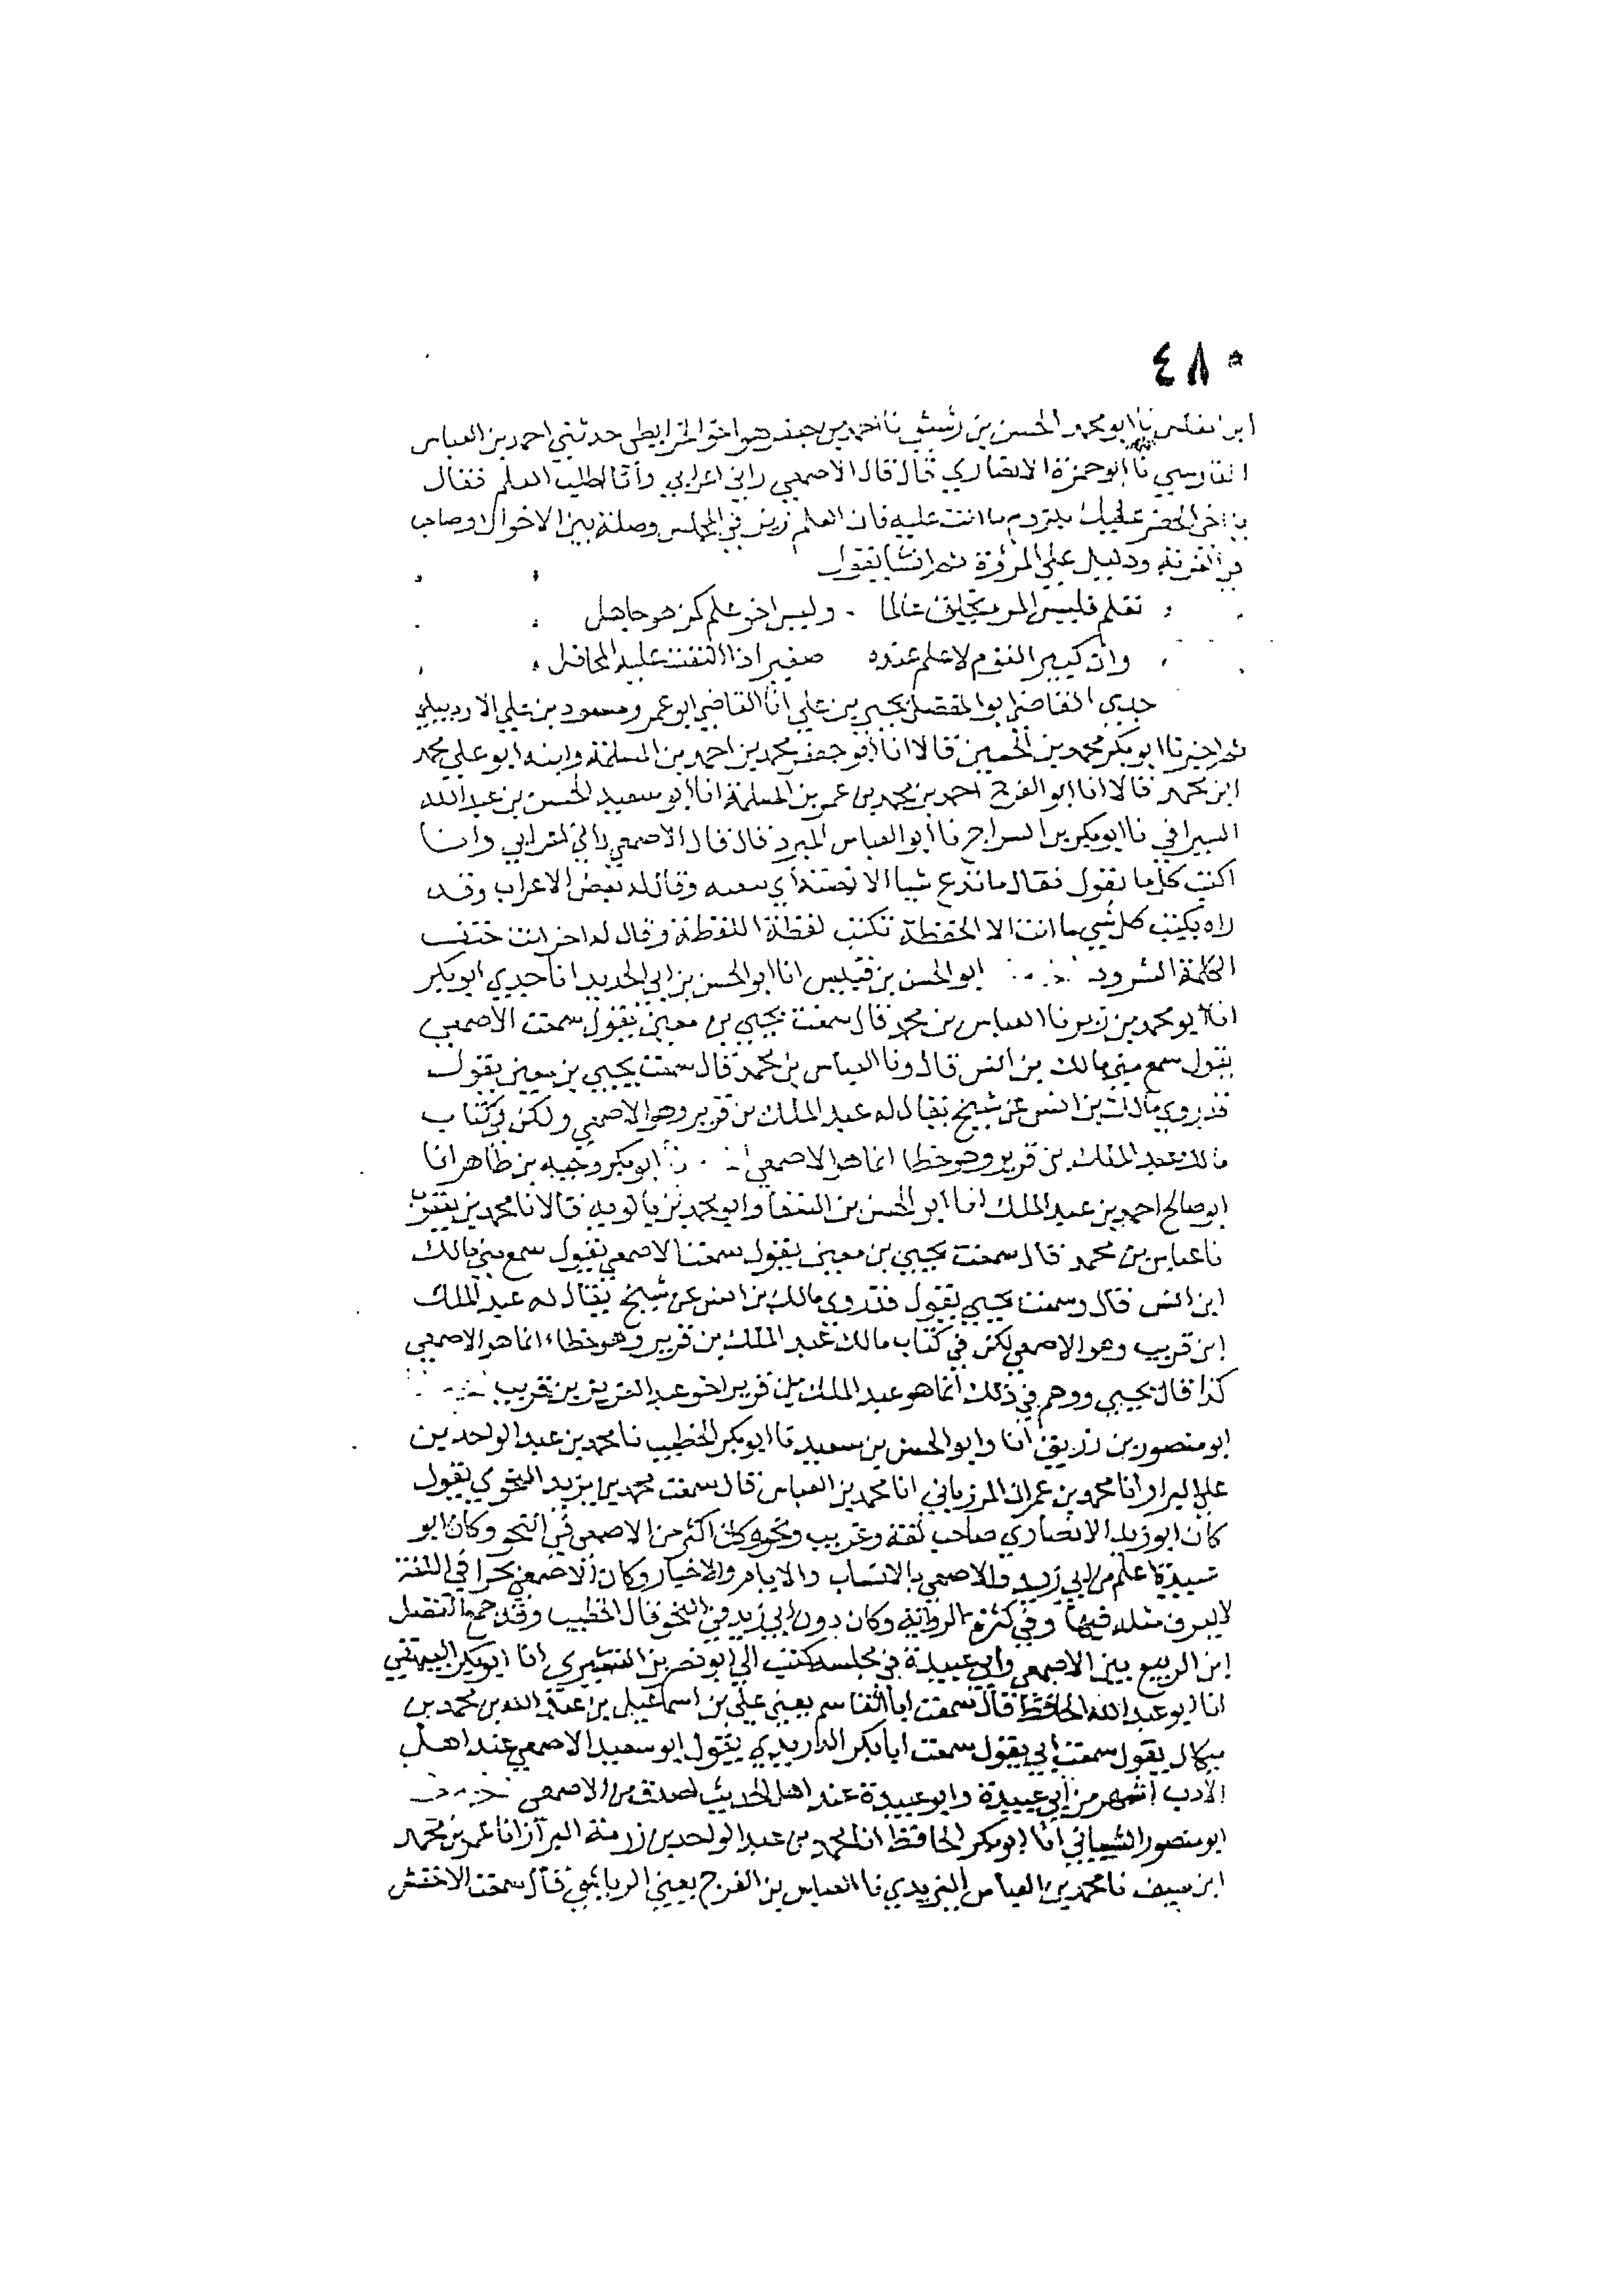 ٤٨٠
ابو محمد الحسن بن رشيق نا احمد بن جعفر هو اخو الخرايطي حدثني احمد بن العباس
نا ابو حمزة الانصاري قال قال الاصمعي راني اعرابي وانا اطلب العلم فقال
عليك بلزوم ما انت عليه فان العلم زين في المجلس وصلة بين الاخوان وصاحب
ودليل علي المروة ثم انشا يقول
تعلم فليس المر يخلق عالما وليس اخو علم كمن هو جاهل
وان كبير القوم لا علم عنده صغير اذا التفت عليه المحافل
جدي القاضي ابو المفضل يحيي بن علي انا القاضي ابو عمرو مسعود بن علي الاردبيلي
ثم اخبرنا ابو بكر محمد بن الحسين قالا انا ابو جعفر محمد بن احمد بن المسلمة وابنه ابو علي محمد
ابن محمد قالا انا ابو الفرج احمد بن محمد بن عمر بن المسلمة انا ابو سعيد الحسن بن عبد الله
السيرافي نا ابو بكر بن السراج نا ابو العباس المبرد قال قال الاصمعي راني اعرابي وانا
اكتب كل ما يقول فقال ما تدع شيا الا نمصته اي نتفته وقال له بعض الاعراب وقد
راه يكتب كل شي ما انت الا الحفظة تكتب لفظة اللفظة وقال له اخر انت حتف
الكلمة الشرود ابو الحسن بن قبيس انا ابو الحسن بن ابي الحديد انا جدي ابو بكر
انا ابو محمد بن زبر نا العباس بن محمد قال سمعت يحيي بن معين يقول سمعت الاصمعي
يقول سمع مني مالك بن انس قال ونا العباس بن محمد قال سمعت يحيي بن معين يقول
قد روي مالك بن انس عن شيخ يقال له عبد الملك بن قرير وهو الاصمعي ولكن في كتاب
مالك عبد الملك بن قرير وهو خطا انما هو الاصمعي ابو بكر وجيه بن طاهر انا
ابو صالح احمد بن عبد الملك انا ابو الحسن بن السقا وابو محمد بن بالويه قالا نا محمد بن يعقوب
نا عباس بن محمد قال سمعت يحيي بن معين يقول سمعت الاصمعي يقول سمع مني مالك
ابن انس قال وسمعت يحيي يقول قد روي مالك بن انس عن شيخ يقال له عبد الملك
ابن قريب وهو الاصمعي لكن في كتاب مالك عبد الملك بن قرير وهو خطاء انما هو الاصمعي
كذا قال يحيي ووهم في ذلك انما هو عبد الملك بن قرير اخو عبد العزيز بن قريب
ابو منصور بن زريق انا وابو الحسن بن سعيد نا ابو بكر الخطيب نا محمد بن عبد الواحد بن
علي البزار انا محمد بن عمران المرزباني انا محمد بن العباس قال سمعت محمد بن يزيد النحوي يقول
كان ابو زيد الانصاري صاحب لغة وغريب ونحو وكان اكثر من الاصمعي في النحو وكان ابو
عبيدة اعلم من ابي زيد والاصمعي بالانساب والايام والاخبار وكان الاصمعي بحرا في اللغة
لا يعرف مثله فيها وفي كثرة الرواية وكان دون ابي زيد في النحو قال الخطيب وقد جمع الفضل
ابن الربيع بين الاصمعي وابي عبيدة في مجلسه كتب الي ابو نصر بن القشيري انا ابو بكر البيهقي
انا ابو عبد الله الحافظ قال سمعت ابا القاسم يعني علي بن اسماعيل بن عبد الله بن محمد بن
ميكال يقول سمعت ابي يقول سمعت ابا بكر الداريدي يقول ابو سعيد الاصمعي عند اهل
الادب اشهر من ابي عبيدة وابو عبيدة عند اهل الحديث اصدق من الاصمعي
ابو منصور الشيباني انا ابو بكر الحافظ انا محمد بن عبد الواحد بن زرمة البزاز انا عمر بن محمد
ابن سيف نا محمد بن العباس اليزيدي نا العباس بن الفرج يعني الرياشي قال سمعت الاخفش